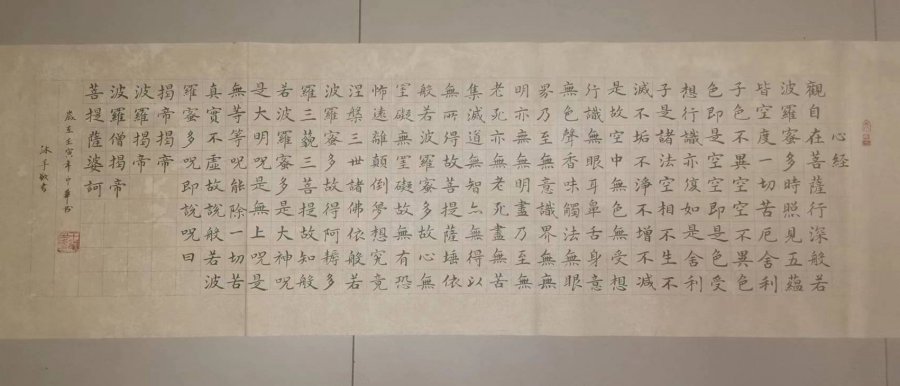 心經
觀自在菩薩行深般若
波羅蜜多時照見五蘊
皆空度一切苦厄舍利
子色不異空空不異色
色即是空空即是色受
想行識亦復如是舍利
子是諸法空相不生不
滅不垢不淨不增不減
是故空中無色無受想
行識無眼耳鼻舌身意
無色聲香味觸法無眼
界乃至無意識界無無
明亦無無明盡乃至無
老死亦無老死盡無苦
集滅道無智亦無得以
無所得故菩提薩埵依
般若波羅蜜多故心無
罣礙無罣礙故無有恐
怖遠離顛倒夢想究竟
涅槃三世諸佛依般若
波羅蜜多故得阿耨多
羅三藐三菩提故知般
若波羅蜜多是大神呪
是大明呪是無上呪是
無等等呪能除一切苦
真實不虛故說般若波
羅蜜多呪即說呪曰
揭帝揭帝
波羅揭帝
波羅僧揭帝
菩提薩婆訶
歲至壬寅年
沐手敬書